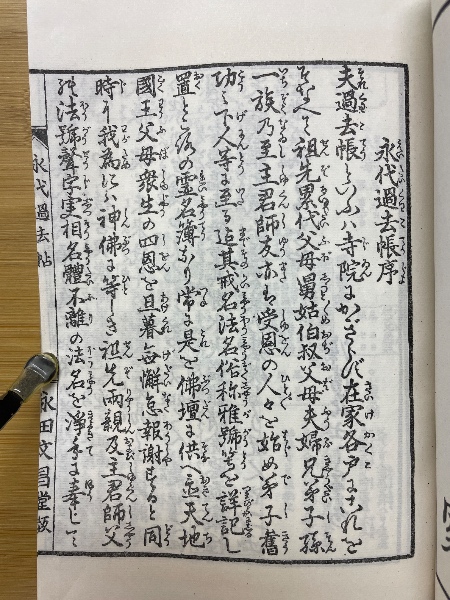 永代過去帳序
夫過去帳といふハ寺院にかぎらず在家各戸にこれを
そなへて祖先累代父母舅姑伯叔父母夫婦兄弟子孫
一族乃至主君師友亦は受恩の人々を始め弟子舊
功之下人等に至る迄其戒名法名俗称雅號等を詳記し
置ところの霊名簿なり常に是を佛壇に供へ置天地
國王父母衆生の四恩を旦暮無懈怠報謝すると同
時に我為にハ神佛に等しき祖先両親及主君師父
の法號聲字実相名體不離の法名を淨
永代過去帖
永田文昌堂版